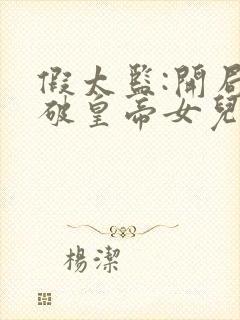 假太監:開局
破皇帝女兒
楊潔